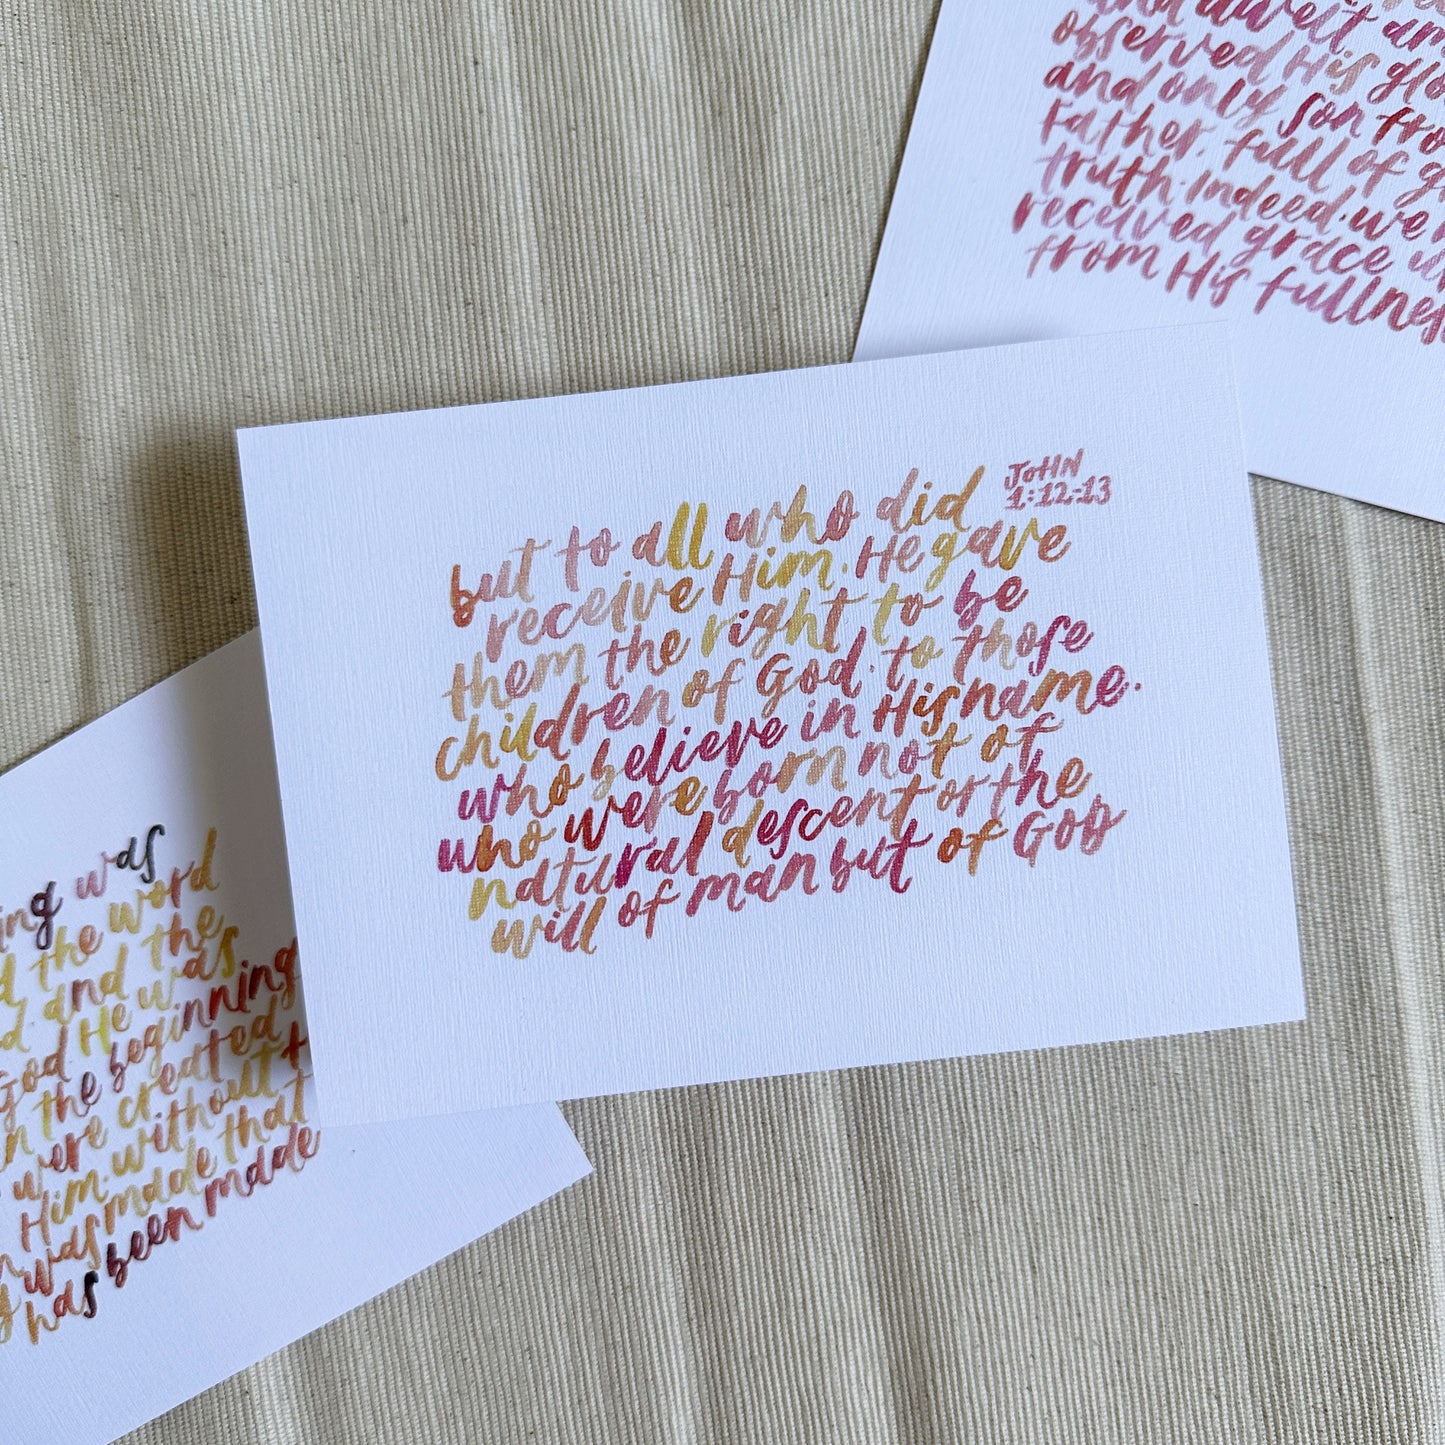 and dwelt am
observed His glo
and only son fro
Father, full of g
truth. Indeed, we
received grace
from His fullnes
JOHN
1:12-13
but to all who did
receive Him, He gave
them the right to be
children of God, to those
who believe in His name,
who were born not of
natural descent or the
will of man but of GOD
ing was
the word
and the
God. He was
the beginning
were created
Him. without
was made that
has been made